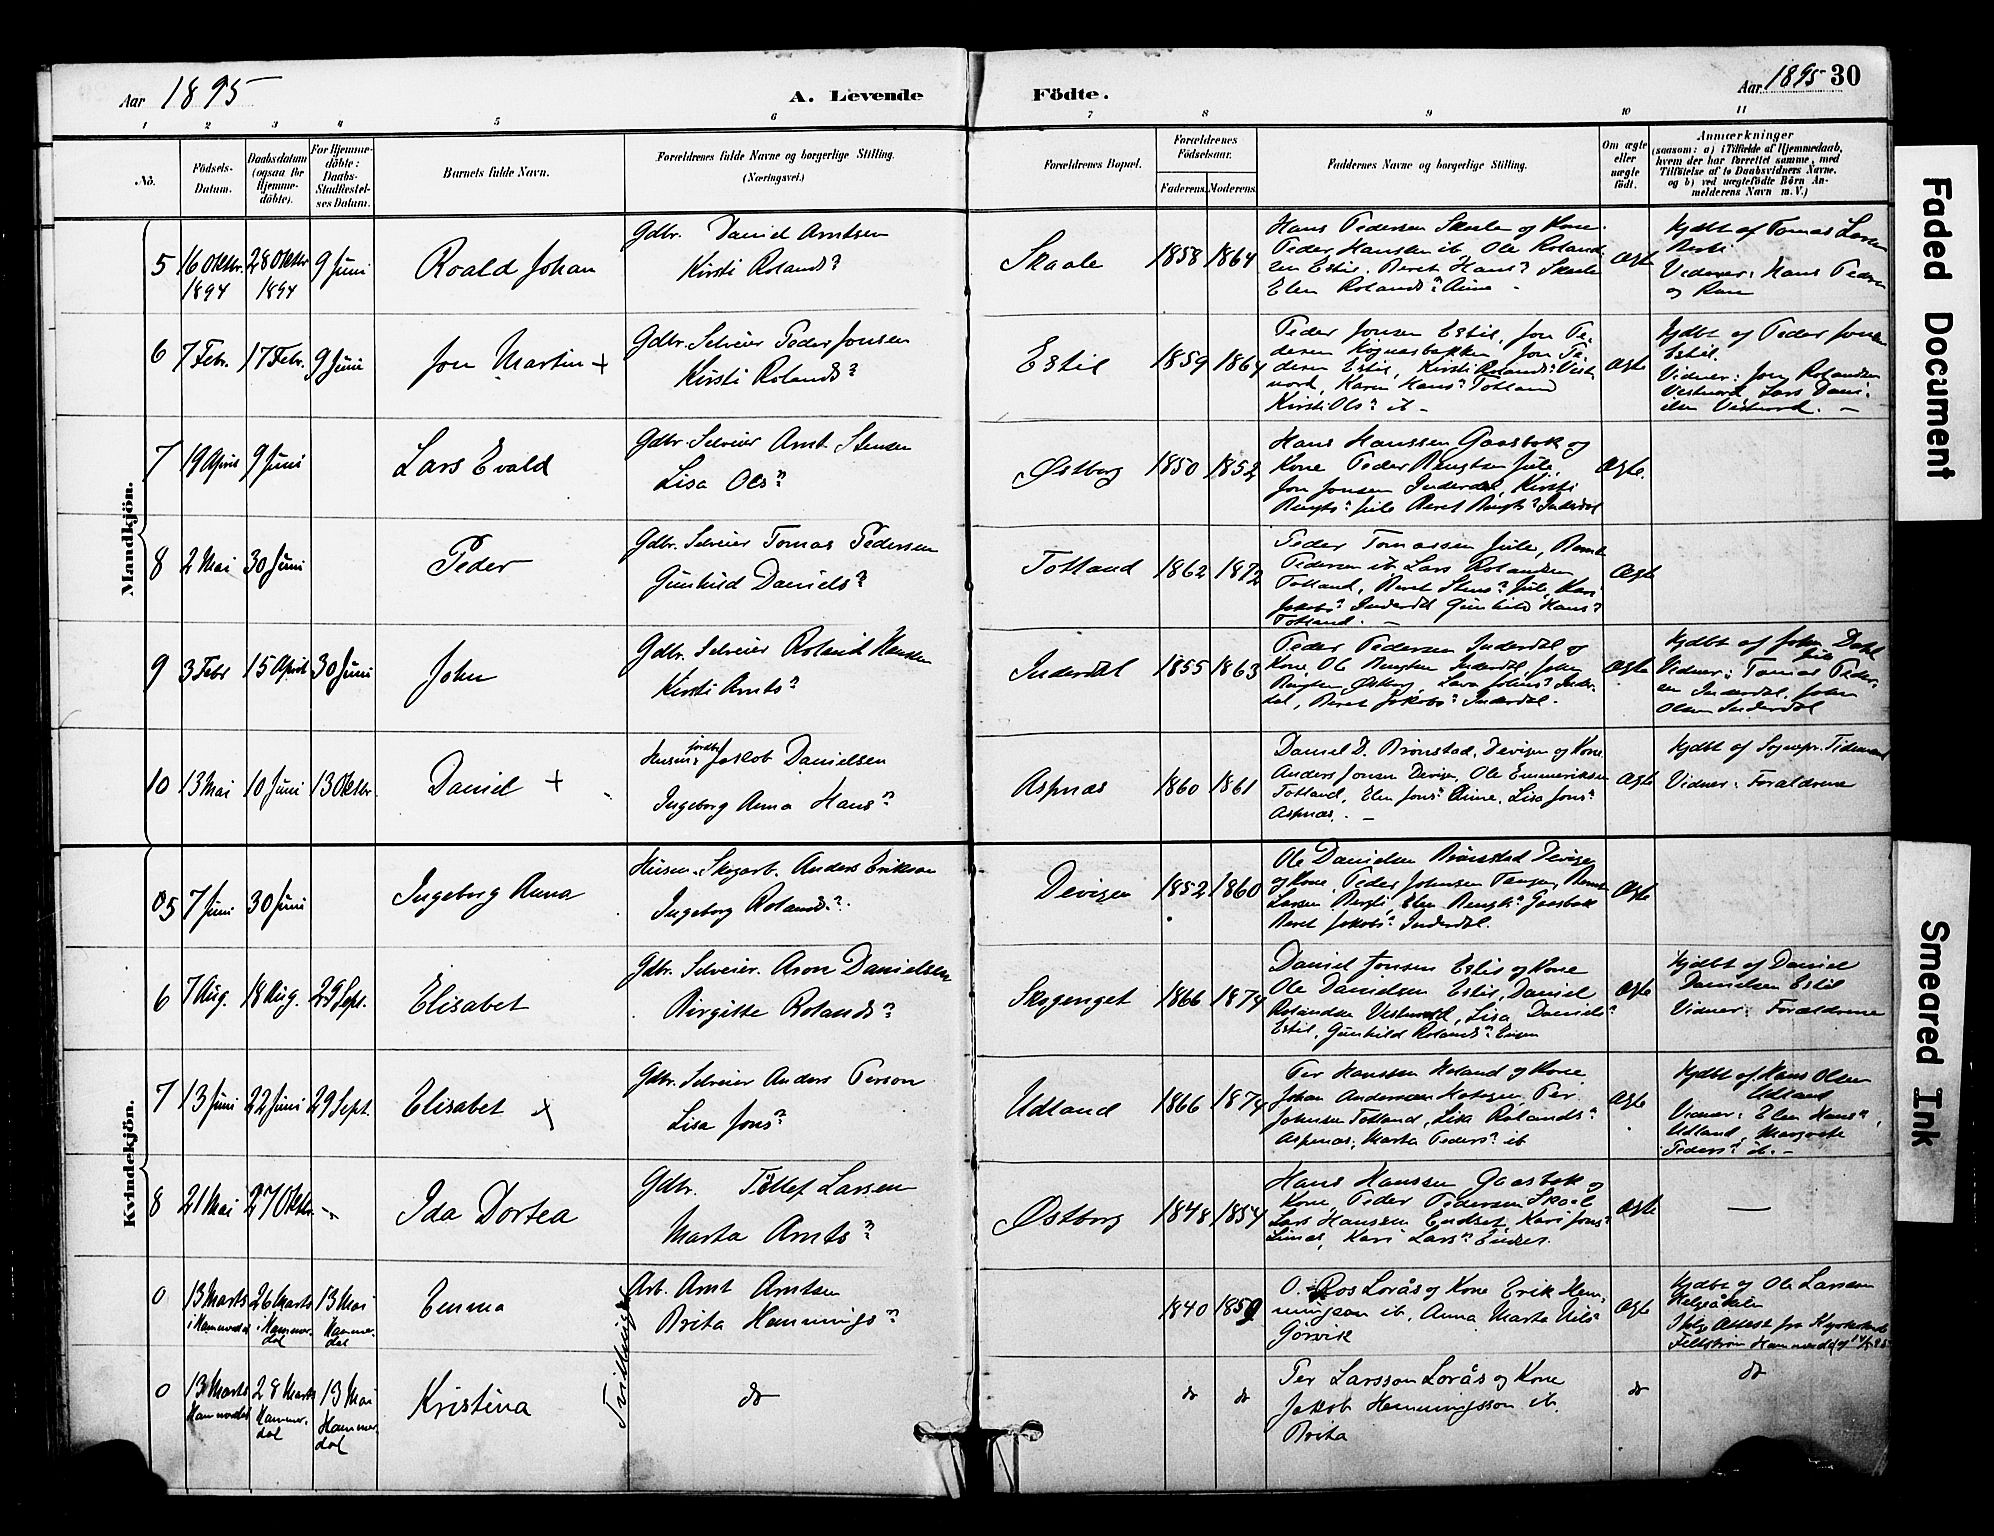 Aar 1895
A. Levende
Födte.
Aar 1895 30
1 2 3 4 5 6 7 8 9 10 11
No.
Födsels-Datum.
Daabsdatum (ogsaa for Hjemme-döbte).
For Hjemme-döbte: Daabs-Stadfæstel-ses Datum.
Barnets fulde Navn.
Forældrenes fulde Navne og borgerlige Stilling. (Næringsvei.)
Forældrenes Bopæl.
Forældrenes Födselsaar.
Faderens. Moderens.
Faddernes Navne og borgerlige Stilling.
Om ægte eller uægte födt.
Anmærkninger
(saasom: a) i Tilfælde af Hjemmedaab,
hvem der har forrettet samme, med
Tilföielse af to Daabsvidners Navne,
og b) ved uægtefödte Börn An-
melderens Navn m. V.)
Mandkjön.
5 16 Oktbr. 1894 28 Oktbr 1894 9 Juni Roald Johan
Gdbr. Daniel Arntsen
Kirsti Rolandsn
Skaale 1858 1864
Hans Pedersen Skaale og Kone
Peder Hansen ib. Ole Roland-
sen Estil. Beret Hansn Skaale
Elen Rolandsn
Ægte
Hjdbt af Tomas Larsen
Vidner: Hans Pedersen
6 7 Febr. 17 Febr. 9 Juni Jon Martin +
Gdbr. Selveier Peder Jonsen
Kirsti Rolandsn
Estil 1859 1864
Peder Jonsen Estil, Jon Pe-
dersen Estil, Kirsti Rolandsn Vest-
nord, Karen Hansn Totland
Kirsti Olsn ib.
Ægte
Hjdbt af Peder Jonsen
Estil.
Vidner: Jon Rolandsen
Vestnord, Lars Dani-
elsen Vestnord. —
7 19 April 9 Juni Lars Evald
Gdbr. Selveier Arnt Stensen
Lisa Olsn
Østborg 1850 1852
Hans Hanssen Gaasbak og
Kone Peder Bengtsen Jule,
Jon Jonsen Inderdal, Kirsti
Bengtsn Jule Beret Bengtsn Inderdal
Ægte.
8 2 Mai 30 Juni Peder
Gdbr. Selveier Tomas Pedersen
Gunhild Danielsn
Totland 1862 1872
Peder Tomassen Jule, Bernt
Pedersen ib. Lars Rolandsen
Totland, Beret Stensn Jule, Kari
Jakobsn Inderdal Gunhild Hansn
Totland. —
Ægte
9 3 Febr 15 April 30 Juni John
Gdbr. Selveier Roland Hansen
Kirsti Arntsn
Inderdal 1855 1863
Peder Pedersen Inderdal og
Kone Ole Bengtsen Inderdal, John
Bengtsen Østborg, Lava Johnsn Inder-
dal, Beret Jakobsn Inderdal.
Ægte
Hjdbt af John Dahl
Jule
Vidner: Tomas Peder-
sen Inderdal, John
Olsen Inderdal
10 13 Mai 10 Juni 13 Oktbr Daniel +
Husm. jordbr Jakob Danielsen
Ingeborg Anna Hansn
Aspnæs 1860 1861
Daniel D. Brønstad, Devigen og Kone
Anders Jonsen Devigen, Ole Emmeriksen
Totland, Elen Jonsn, Lisa Jonsn
Aspnæs. —
Ægte
Hjdbt af Sognepr. Tidemand
Vidner: Forældrene
Kvindekjön.
5 7 Juni 30 Juni Ingeborg Anna
Husm. Skogarb. Anders Erikson
Ingeborg Rolandsn
Devigen 1852 1860
Ole Danielsen Brönstad Devigen
og Kone, Peder Johnsen Tangen, Bernt
Larsen Bergli, Elen Bengtsn Gaasbak
Beret Jakobsn Inderdal.
Ægte
6 7 Aug. 18 Aug. 29 Sept. Elisabet
Gdbr. Selveier. Aron Danielsen
Birgitte Rolandsn
Skogenget 1866 1874
Daniel Jonsen Estil og Kone
Ole Danielsen Estil, Daniel
Rolandsen Vestnord, Lisa Danielsn
Estil, Gunhild Rolandsn
Ægte
Hjdbt af Daniel
Danielsen Estil
Vidner: Forældrene
7 13 Juni 22 Juni 29 Sept. Elisabet +
Gdbr. Selveier Anders Person
Lisa Jonsn
Udland 1866 1874
Per Hanssen Moland og Kone
Johan Andersen, Per
Johnsen Totland, Lisa Rolandsn
Aspnæs, Marta Pedersn ib
Ægte
Hjdbt af Hans Olsen
Udland
Vidner: Elen Hansn,
Udland, Margrete
Pedersn ib. —
8 21 Mai 27 Oktbr. — Ida Dortea
Gdbr. Tollef Larsen
Marta Arntsn
Østborg 1848 1854
Hans Hanssen Gaasbak og
Kone Peder Pedersen
Lars Hanssen Endset, Kari Jonsn
Kari Larsn
Ægte —
0 13 Marts i Hammerdal 26 Marts i Hammer-dal 13 Mai Hamme-dal Emma
Tvillinger
Arb. Arnt Arntsen
Brita Hemmingsn
1840 1859
Lorås og Kone Erik Hem-
mingson ib, Anna Marta Nils
Görvik
Ægte
Hjdbt af Ole Larsson
Ifölge Attest fra
Fellström Hammerdal
0 13 Marts Hammerdal 28 Marts Hammer-dal 13 Mai Hammer-dal Kristina
do
do do
Per Larsson Lorås og Kone
Jakob Hemmingsson ib.
Brita
do do
Faded Document
Smeared Ink